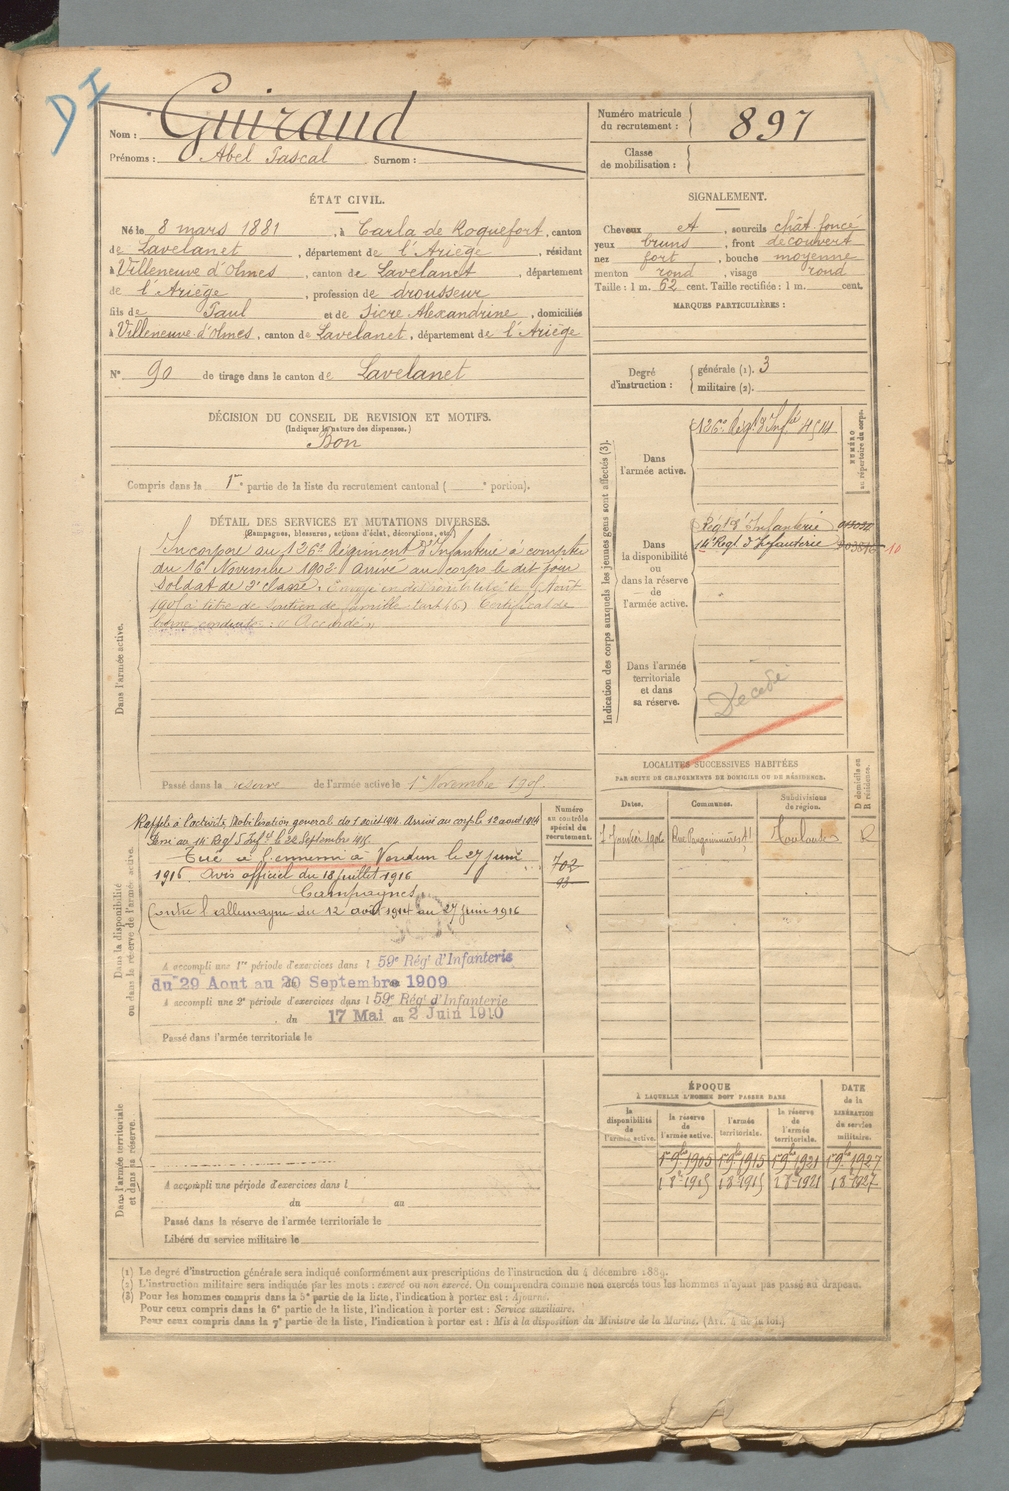 DI
Nom : Guiraud
Prénoms : Abel Pascal Surnom :
Numéro matricule du recrutement : 897
Classe de mobilisation :
ÉTAT CIVIL.
Né le 8 mars 1881, à Carla de Roquefort, canton
de Lavelanet, département de l'Ariège, résidant
à Villeneuve d'Olmes, canton de Lavelanet, département
de l'Ariège, profession de drousseur
fils de Paul et de Sicre Alexandrine, domiciliés
à Villeneuve d'olmes, canton de Lavelanet, département de l'Ariège
N° 90 de tirage dans le canton de Lavelanet
SIGNALEMENT.
Cheveux et, sourcils chât foncé
yeux bruns, front découvert
nez fort, bouche moyenne
menton rond, visage rond
Taille : 1 m. 62 cent. Taille rectifiée : 1 m. cent.
MARQUES PARTICULIÈRES :
Degré d'instruction : générale (1). 3
militaire (2).
DÉCISION DU CONSEIL DE REVISION ET MOTIFS.
(Indiquer la nature des dispenses.)
Bon
Compris dans la 1re partie de la liste du recrutement cantonal ( e portion).
DÉTAIL DES SERVICES ET MUTATIONS DIVERSES.
(Campagnes, blessures, actions d'éclat, décorations, etc.)
Dans l'armée active.
Incorporé au 126e Régiment d'Infanterie à compter
du 16 Novembre 1902 arrivé au corps le dit jour
Soldat de 2e classe. Envoyé en disponibilité le Août
1905 à titre de soutien de famille Certificat de
bonne conduite : "Accordé"
Passé dans la réserve de l'armée active le 1er Novembre 1905.
Indication des corps auxquels les jeunes gens sont affectés (3).
NUMÉRO au répertoire du corps.
Dans l'armée active.
126e Régt d'Infie
Dans la disponibilité ou dans la réserve de l'armée active.
Régt d'Infanterie
14e Régt d'Infanterie 10
Dans l'armée territoriale et dans sa réserve.
Décédé
Dans la disponibilité ou dans la réserve de l'armée active.
Rappelé à l'activité Mobilisation générale du 1 août 1914. Arrivé au corps le 12 août 1914
Passé au 14e Régt d'Infie le 22 Septembre 1915.
Tué à l'ennemi à Verdun le 27 juin
1916. Avis officiel du 18 juillet 1916
Campagnes
Contre l'allemagne du 12 août 1914 au 27 juin 1916
A accompli une 1re période d'exercices dans l 59e Rég' d'Infanterie
du 29 Aout au 20 Septembre 1909
A accompli une 2e période d'exercices dans l 59e Rég' d'Infanterie
du 17 Mai au 2 Juin 1910
Passé dans l'armée territoriale le
Numéro au contrôle spécial du recrutement.
702
93
LOCALITÉS SUCCESSIVES HABITÉES
PAR SUITE DE CHANGEMENTS DE DOMICILE OU DE RÉSIDENCE.
Dates. Communes. Subdivisions de région. D domicile ou R résidence.
Janvier 1906 Toulouse R
ÉPOQUE
À LAQUELLE L'HOMME DOIT PASSER DANS
la disponibilité de l'armée active. la réserve de l'armée active. l'armée territoriale. la réserve de l'armée territoriale. DATE de la LIBÉRATION du service militaire.
1 9bre 1905 1 9bre 1915 1 9bre 1921 1 9bre 1927
Dans l'armée territoriale et dans sa réserve.
A accompli une période d'exercices dans l
du au
Passé dans la réserve de l'armée territoriale le
Libéré du service militaire le
(1) Le degré d'instruction générale sera indiqué conformément aux prescriptions de l'instruction du 4 décembre 1889.
(2) L'instruction militaire sera indiquée par les mots : exercé ou non exercé. On comprendra comme non exercés tous les hommes n'ayant pas passé au drapeau.
(3) Pour les hommes compris dans la 5e partie de la liste, l'indication à porter est : Ajourné.
Pour ceux compris dans la 6e partie de la liste, l'indication à porter est : Service auxiliaire.
Pour ceux compris dans la 7e partie de la liste, l'indication à porter est : Mis à la disposition du Ministre de la Marine. (Art. 4 de la loi.)